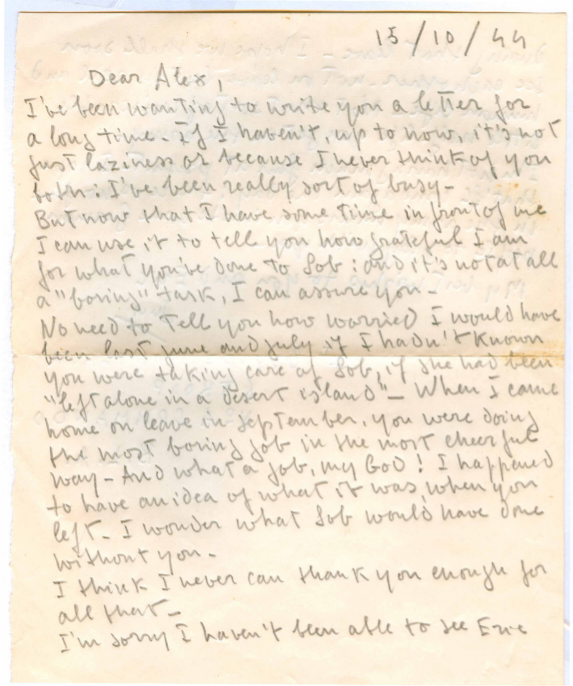 15/10/44
Dear Alex,
I've been wanting to write you a letter for
a long time - If I haven't, up to now, it's not
just laziness or because I never think of you
both: I've been really sort of busy -
But now that I have some time in front of me
I can use it to tell you how grateful I am
for what you've done to Sob: and it's not at all
a "boring" task, I can assure you -
No need to tell you how worried I would have
been last june and july if I hadn't known
you were taking care of Sob, if she had been
"left alone in a desert island" - When I came
home on leave in september, you were doing
the most boring job in the most cheerful
way - And what a job, my God! I happened
to have an idea of what it was, when you
left - I wonder what Sob would have done
without you -
I think I never can thank you enough for
all that -
I'm sorry I haven't been able to see